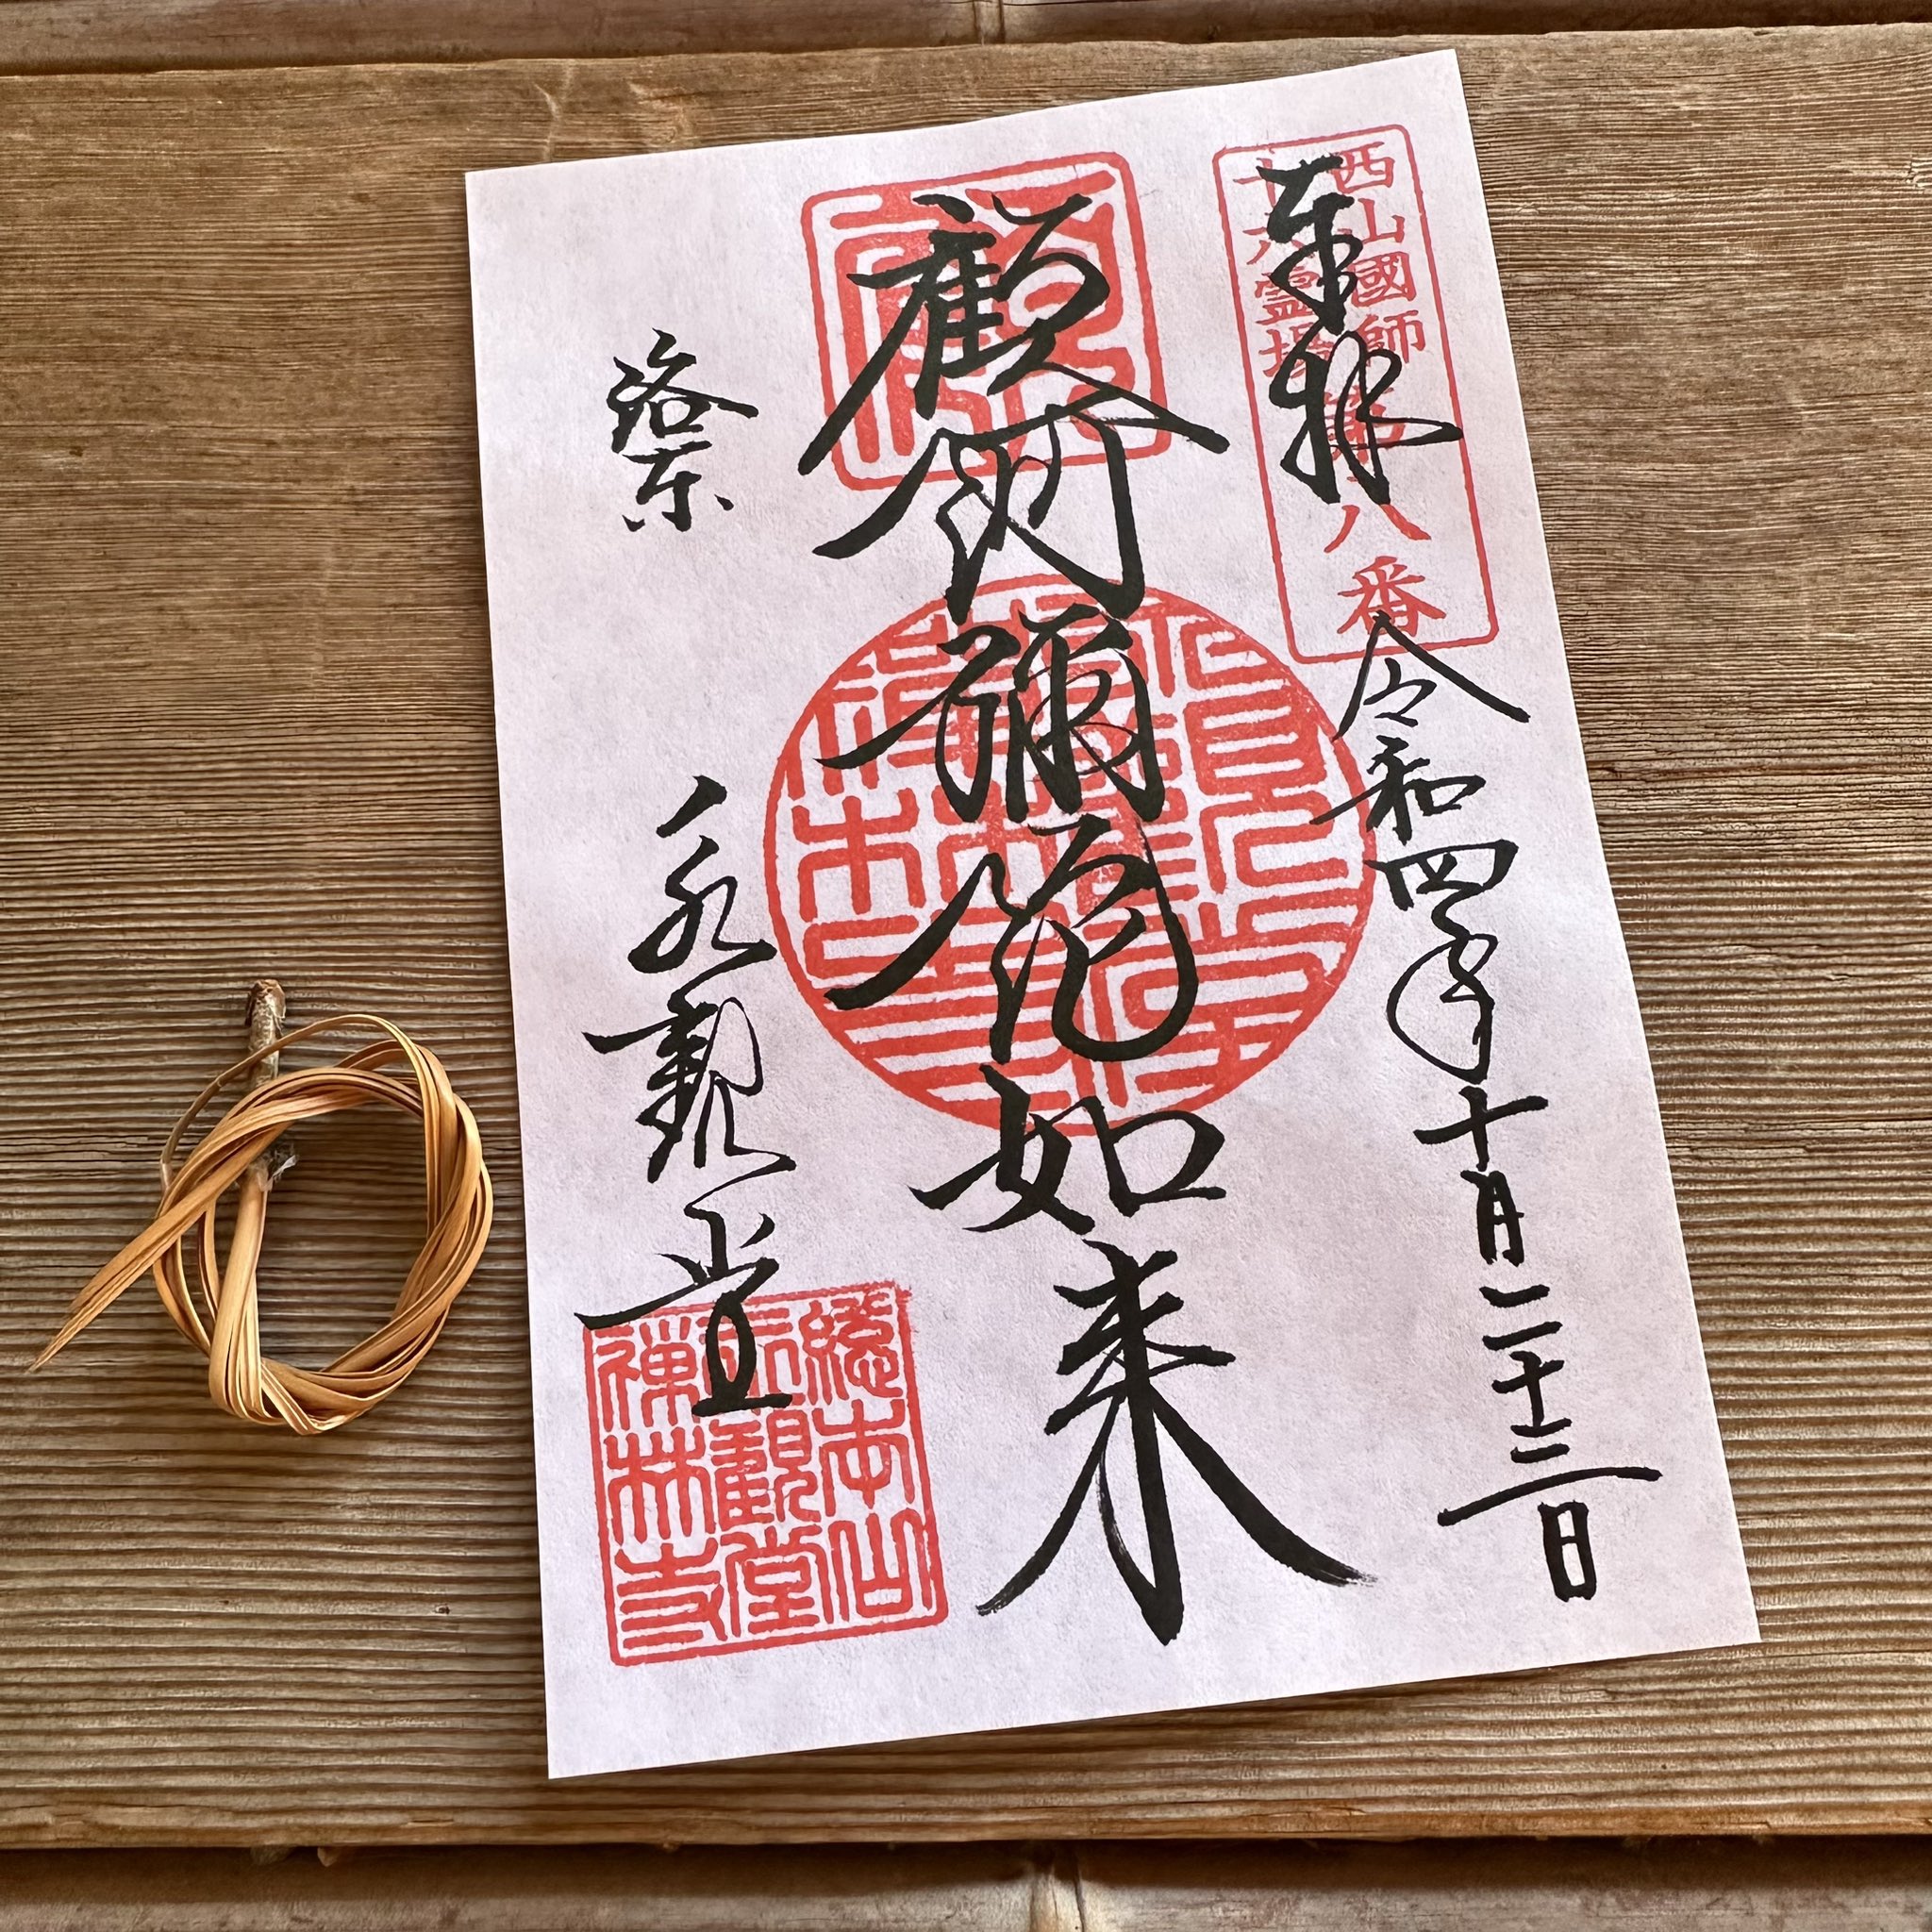 奉拝
令和四年十月二十三日
西山國師
十六霊場
第八番
顧阿彌陀如来
洛東
永観堂
総本山
永観堂
禅林寺